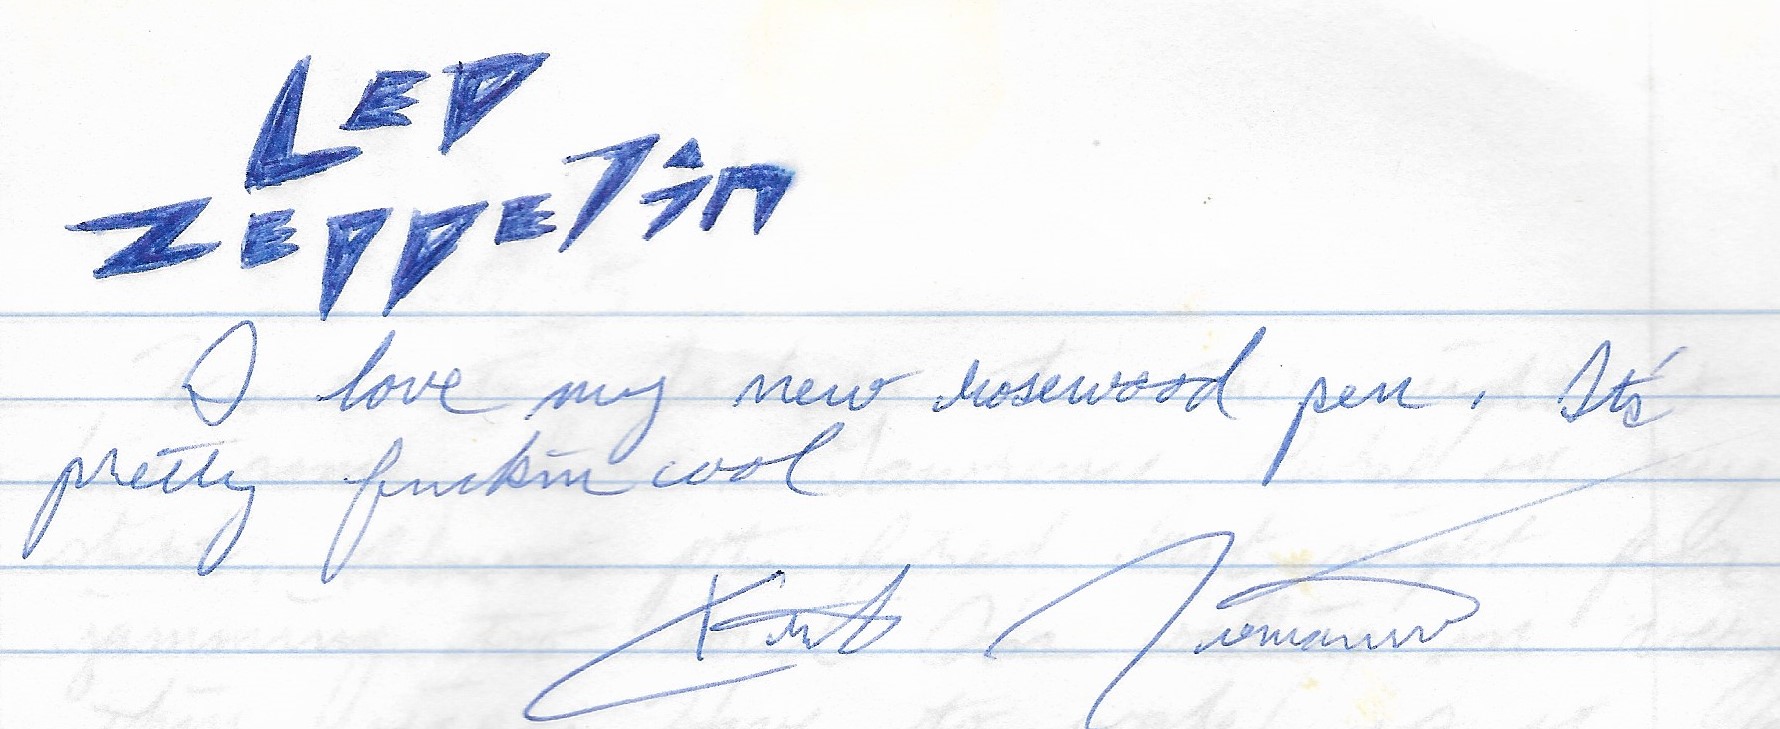 LED
ZEPPElin
I love my new rosewood pen. It's
pretty fuckin cool